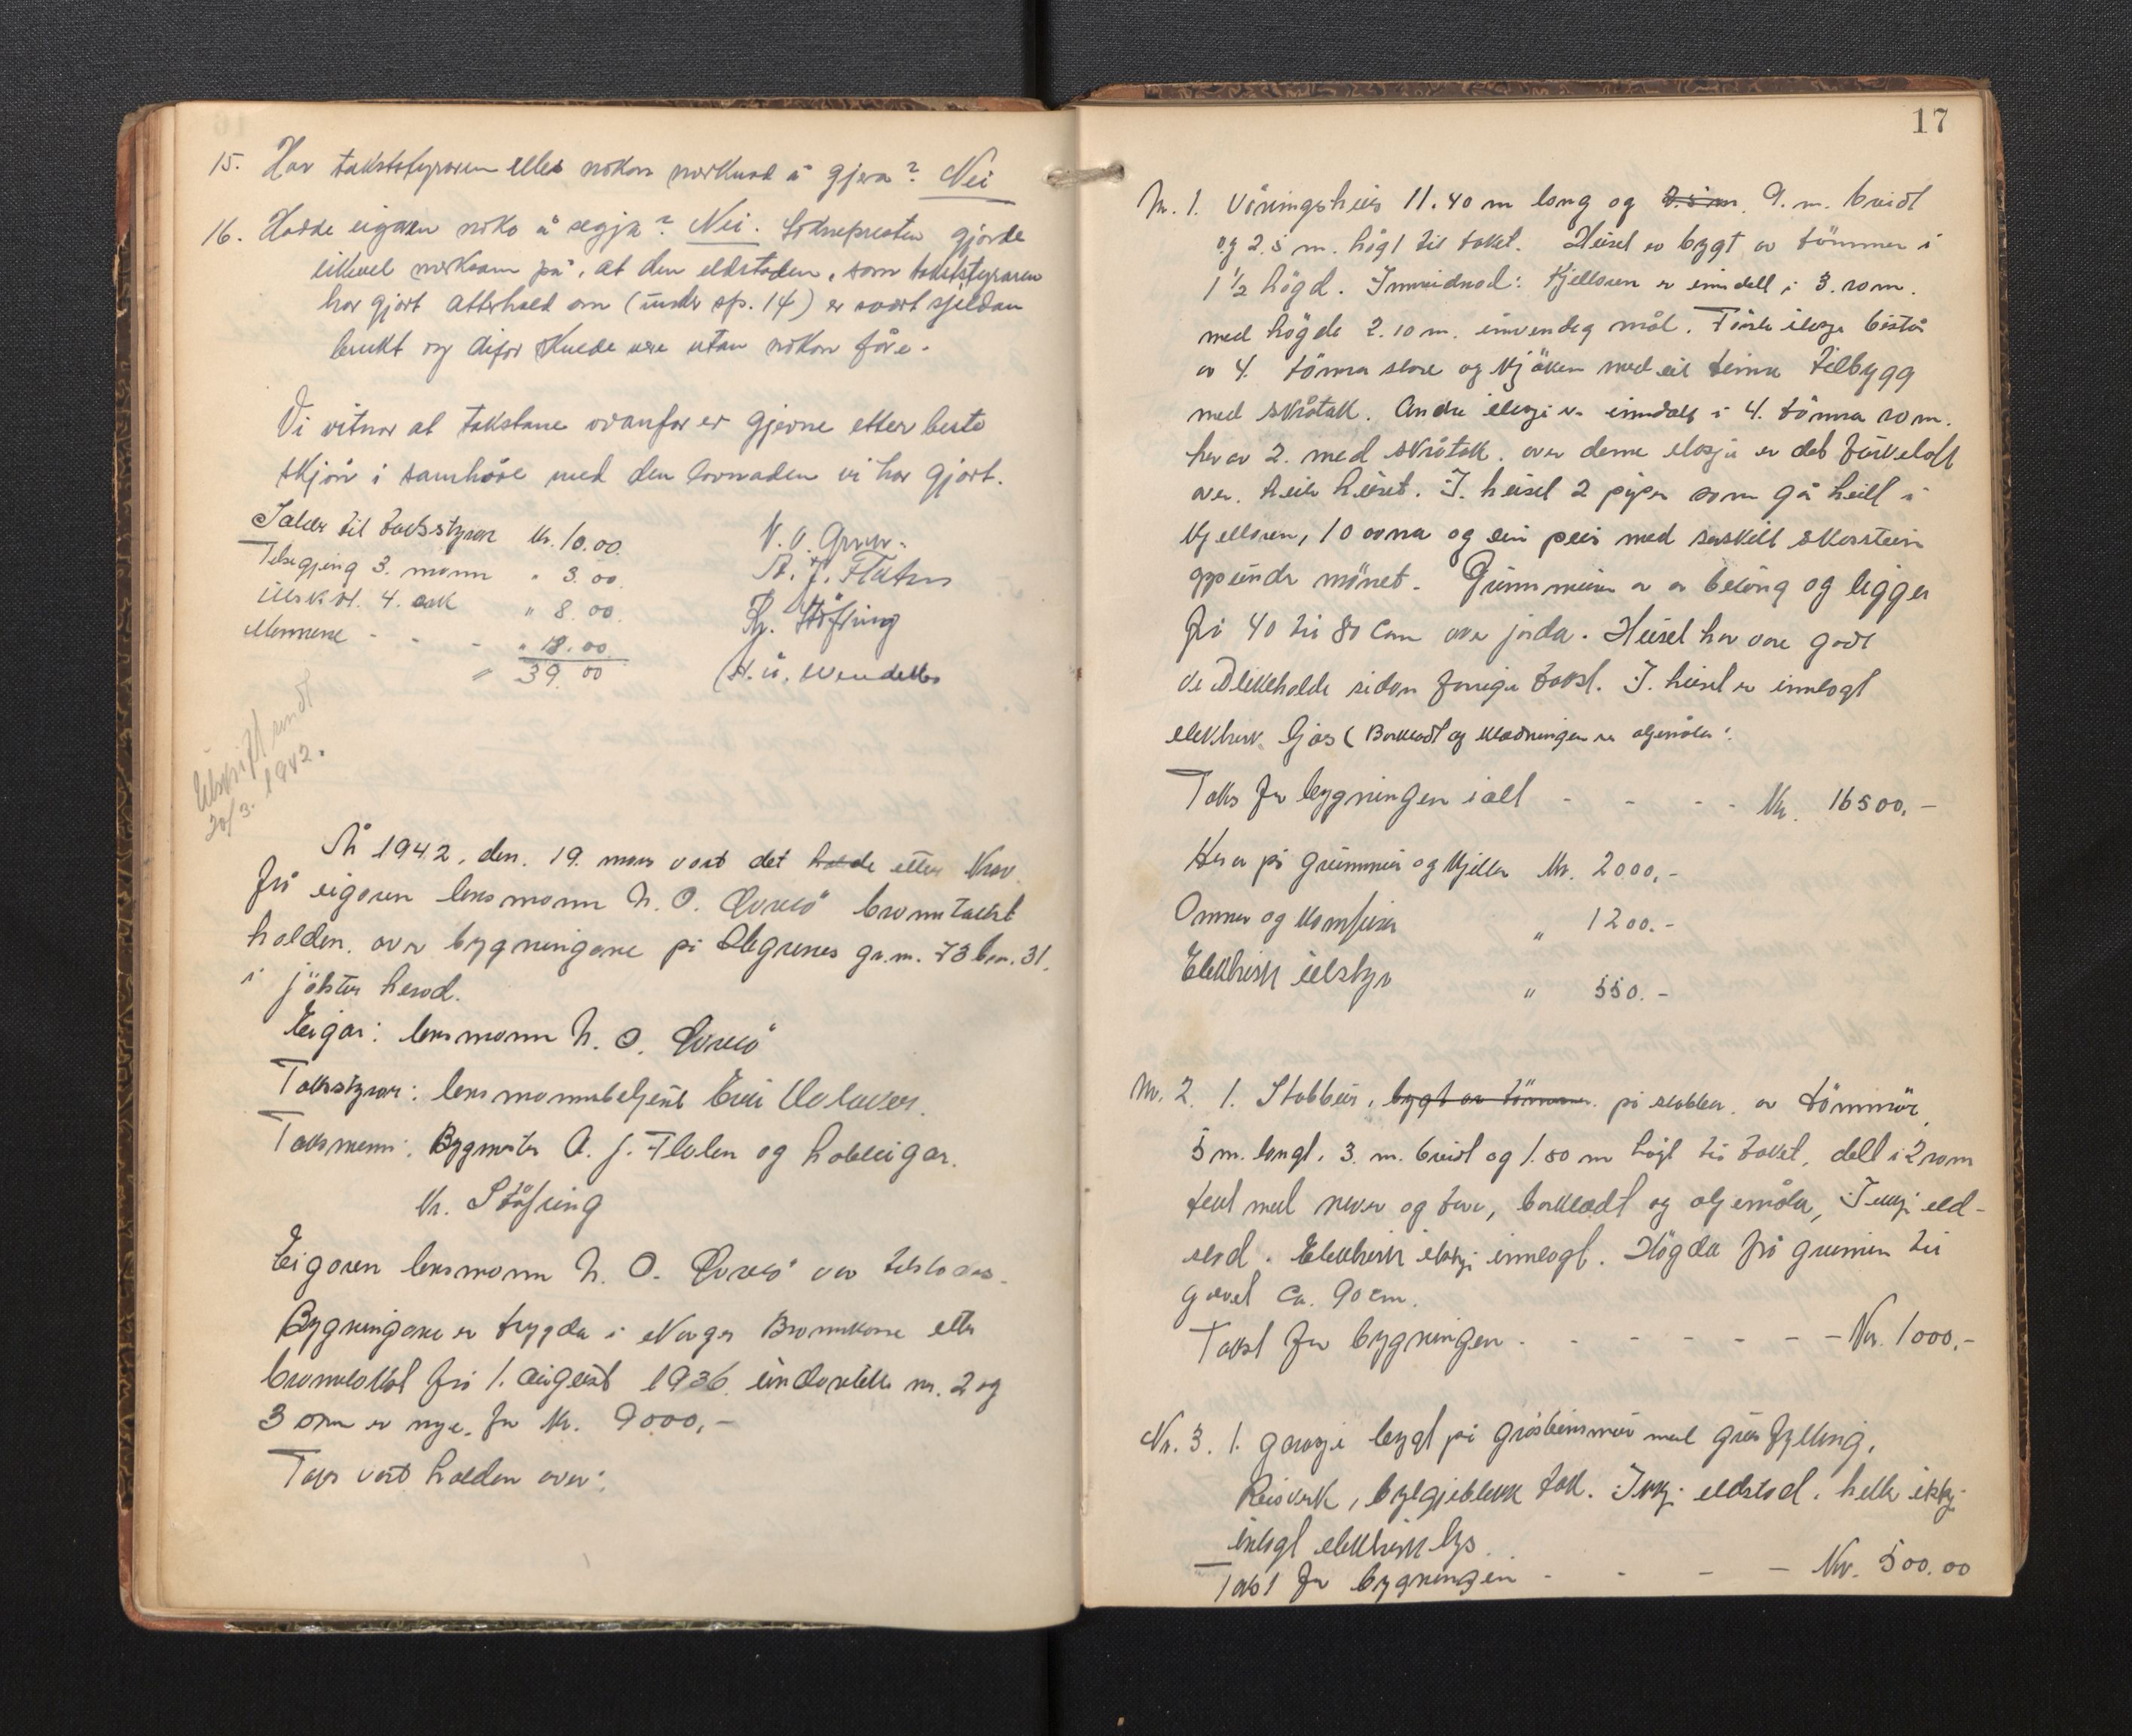 15. Har takststyraren elles nokon merknad å gjera? Nei
16. Hadde eigaren noko å segja? Nei. Soknepresten gjorde
likevel merksam på, at den eldstaden, som takststyraren
har gjort atterhald om (under sp. 14) er svært sjeldan
brukt og difor skulde vere utan nokon fåre.
Vi vitnar at takstane ovanfor er gjevne etter beste
skjøn i samhøve med den lovnaden vi har gjort.
Salær til takststyrar kr. 10.00.
Tilsegjing 3. mann " 3.00.
Utskr. 4. ark " 8.00.
Mennene - - - " 18.00
" 39.00
A. J. Flaten
Kr. Støfring
Utskrift sendt
20/3. 1942.
År 1942, den. 19. mars vart det halde etter krav
frå eigaren lensmann N. O. branntakst
halden. over bygningane på gr.nr. 73 br.nr. 31.
i jölster herad.
Eigar: lensmann N. O.
Takstyrar: lensmannsbetjent
Taksmenn: Bygmester A. J. Flaten og handeigar.
Kr. Støfring
Eigaren lensmann N. O. var tilstades.
Bygningane er trygda i Norges Brannkasse etter
branntakst frå 1. august 1936 undantekke nr. 2 og
3 som er nye. for kr. 9000,-
Taks vart halden over:
17
Nr. 1. Våningshus 11.40 m lang og 9. m. breidt
og 2.5 m. högt til taket. Huset er bygt av tömmer i
1 1/2 högd. Innreidnad: Kjellaren er inndelt i 3. rom.
med högde 2.10 m. invendig mål. Förste etasje består
av 4. tömra stove og kjöken med eit timra tilbygg
med skråtak. Andre etasje er inndelt i 4. tömra rom.
herav 2. med skråtak. over denne etasje er det törkeloft
over. heile huset. I. huset 2 piper som gå heilt i
kjellaren, 10 omna og ein peis med særskilt skorstein
oppunde mönet. Grunnmuren er av betong og ligger
frå 40 til 80 cm over jorda. Huset har vore godt
vedlikeholde sidan forrige takst. I. huset er innlagt
elektrisk ljos (Bordkledt og kledningen er oljemåla.
Taks for bygningen i alt - - - - Kr. 16500.-
Herav på grunnmur og kjeller Kr. 2000.-
Omner og komfurer " 1200.-
Elektrisk utstyr " 550.-
Nr. 2. 1. Stabbur, bygt av tömmer. på stabber. av tömmer,
5 m. langt. 3. m. breidt og 1.80 m högt til taket, delt i 2 rom
tekt med never og torv, bordkledt og oljemåla, Ikkje eld-
stad. Elektrisk ikkje innlagt. Högda frå grunnen til
golvet ca. 90 cm.
Takst for bygningen - - - - - - Kr. 1000.-
Nr. 3. 1. garasje bygt på gråsteinsmur med grus fylling.
Reisverk, bylgjeblekk tak. Ikkje eldstad. heller ikkje
inlagt elektrisk lys.
Takst for bygningen - - - - Kr. 500.00